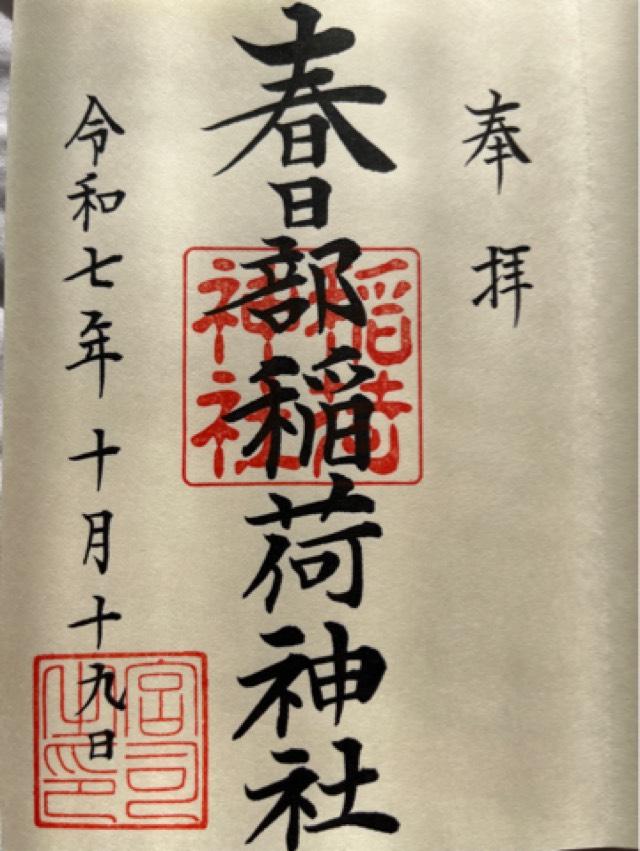 奉拝
春日部稲荷神社
稲荷
神社
令和七年十月十九日
宮司
之印